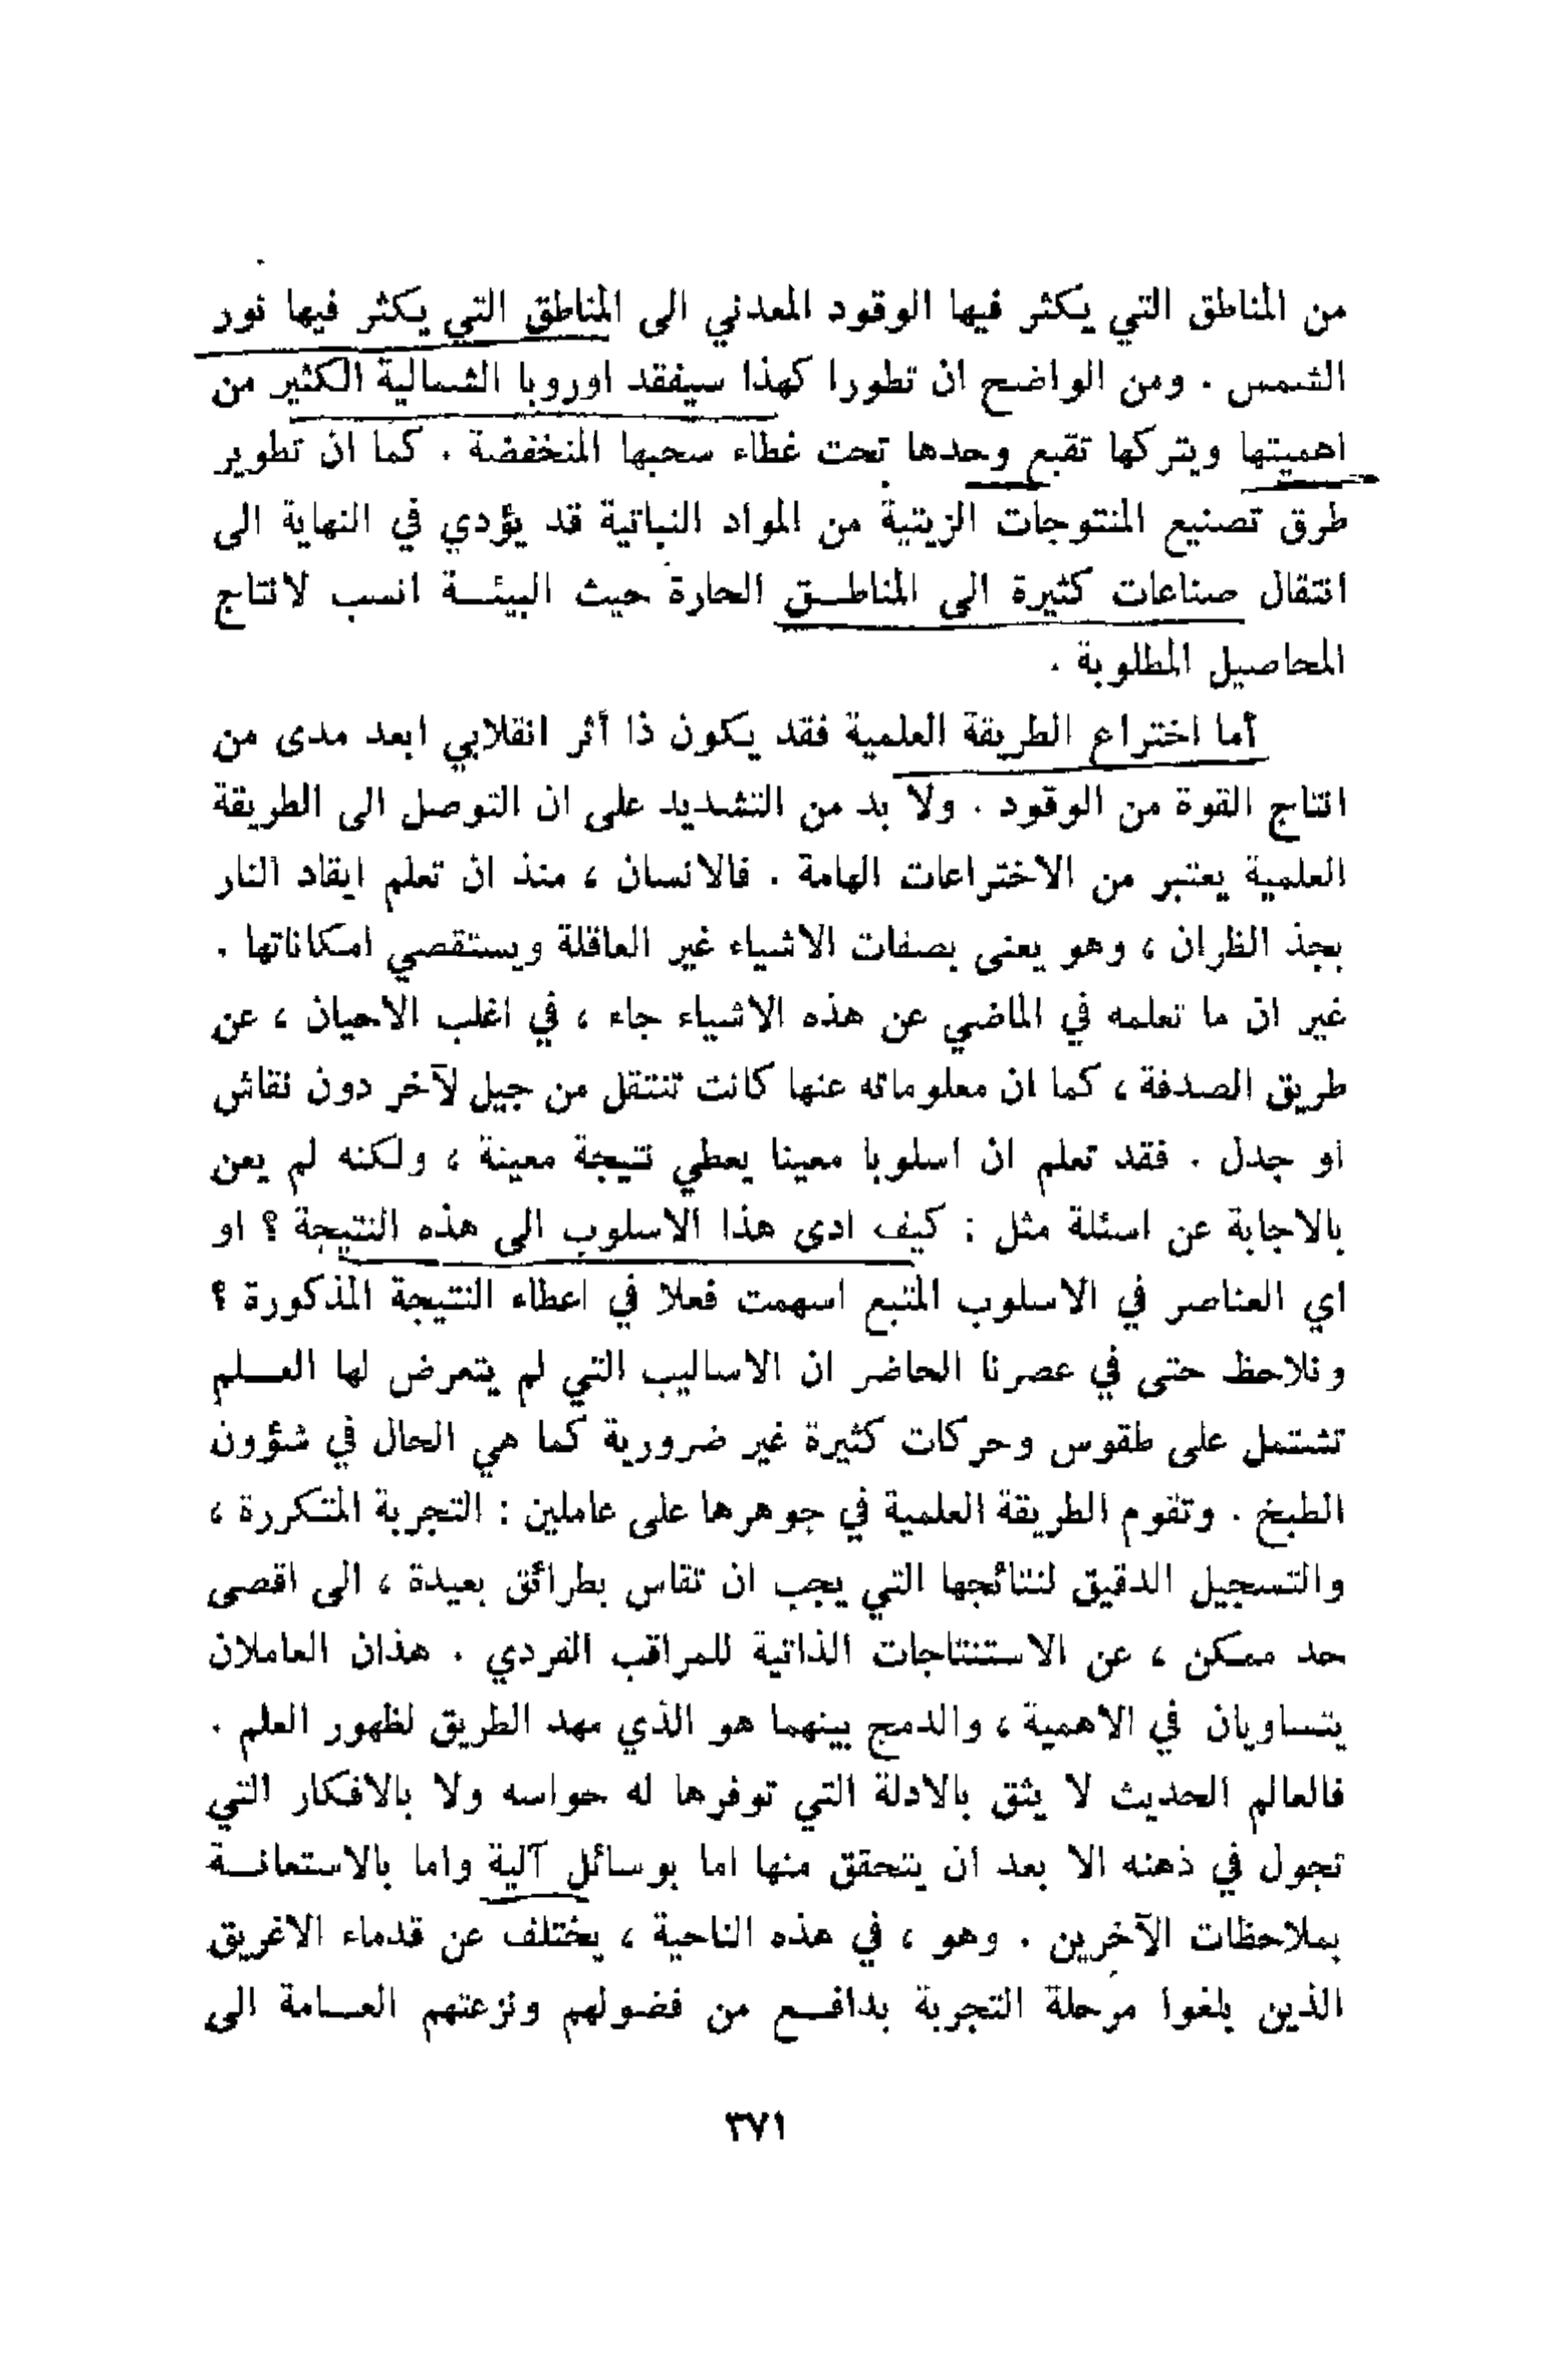 من المناطق التي يكثر فيها الوقود المعدني الى المناطق التي يكثر فيها نور
الشمس . ومن الواضح ان تطورا كهذا سيفقد اوروبا الشمالية الكثير من
اهميتها ويتركها تقبع وحدها تحت غطاء سحبها المنخفضة . كما ان تطوير
طرق تصنيع المنتوجات الزيتية من المواد النباتية قد يؤدي في النهاية الى
انتقال صناعات كثيرة الى المناطــق الحارة حيث البيئــة انسب لانتاج
المحاصيل المطلوبة .
أما اختراع الطريقة العلمية فقد يكون ذا أثر انقلابي ابعد مدى من
انتاج القوة من الوقود . ولا بد من التشديد على ان التوصل الى الطريقة
العلمية يعتبر من الاختراعات الهامة . فالانسان ، منذ ان تعلم ايقاد النار
بجذ الظران ، وهو يعنى بصفات الاشياء غير العاقلة ويستقصي امكاناتها .
غير ان ما تعلمه في الماضي عن هذه الاشياء جاء ، في اغلب الاحيان ، عن
طريق الصدفة ، كما ان معلوماته عنها كانت تنتقل من جيل لآخر دون نقاش
او جدل . فقد تعلم ان اسلوبا معينا يعطي نتيجة معينة ، ولكنه لم يعن
بالاجابة عن اسئلة مثل : كيف ادى هذا الاسلوب الى هذه النتيجة ؟ او
اي العناصر في الاسلوب المتبع اسهمت فعلا في اعطاء النتيجة المذكورة ؟
ونلاحظ حتى في عصرنا الحاضر ان الاساليب التي لم يتعرض لها العــلم
تشتمل على طقوس وحركات كثيرة غير ضرورية كما هي الحال في شؤون
الطبخ . وتقوم الطريقة العلمية في جوهرها على عاملين : التجربة المتكررة ،
والتسجيل الدقيق لنتائجها التي يجب ان تقاس بطرائق بعيدة ، الى اقصى
حد ممكن ، عن الاستنتاجات الذاتية للمراقب الفردي . هذان العاملان
يتساويان في الاهمية ، والدمج بينهما هو الذي مهد الطريق لظهور العلم .
فالعالم الحديث لا يثق بالادلة التي توفرها له حواسه ولا بالافكار التي
تجول في ذهنه الا بعد ان يتحقق منها اما بوسائل آلية واما بالاستعانــة
بملاحظات الآخرين . وهو ، في هذه الناحية ، يختلف عن قدماء الاغريق
الذين بلغوا مرحلة التجربة بدافــع من فضولهم ونزعتهم العــامة الى
٣٧١